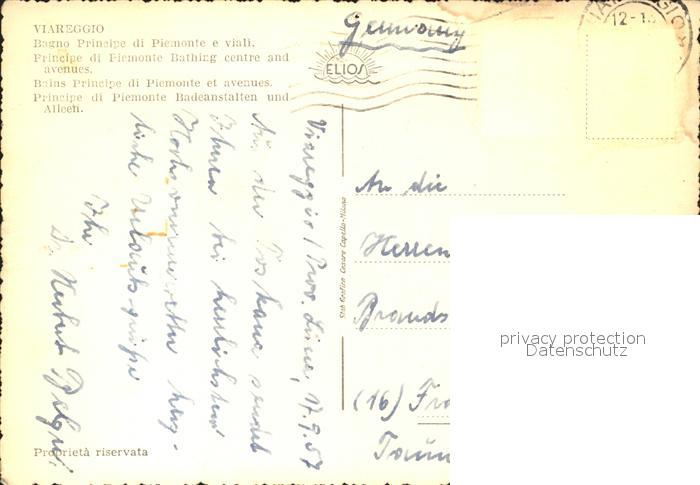 VIAREGGIO
Bagno Principe di Piemonte e viali.
Principe di Piemonte Bathing centre and
avenues.
Bains Principe di Piemonte et avenues.
Principe di Piemonte Badeanstalten und
Alleen.
Germany
ELIOS
VIAREGGIO
12-1
Viareggio / Prov. Lucca, 17.9.57
Aus der Toskana sendet
Ihnen bei herrlichstem
Hochsommerwetter herz-
liche Urlaubsgrüße
Ihr
Dr. Herbert
Stab. Grafico Cesare Capello - Milano
An die
Herren
Brands
(16) Fra
Taun
privacy protection
Datenschutz
Proprietà riservata